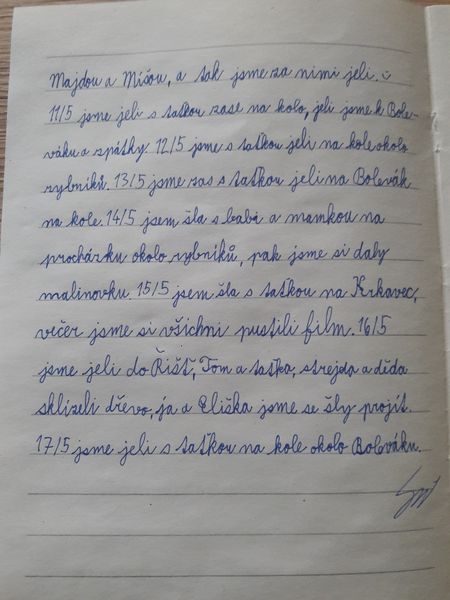 Majdou a Míšou, a tak jsme za nimi jeli.
11/5 jsme jeli s taťkou zase na kolo, jeli jsme k Bole-
váku a zpátky. 12/5 jsme s taťkou jeli na kole okolo
rybníků. 13/5 jsme zas s taťkou jeli na Bolevák
na kole. 14/5 jsem šla s babi a mamkou na
procházku okolo rybníků, pak jsme si daly
malinovku. 15/5 jsem šla s taťkou na Krkavec,
večer jsme si všichni pustili film. 16/5
jsme jeli do Říšť, Tom a taťka, strejda a děda
sklízeli dřevo, ja a Eliška jsme se šly projít.
17/5 jsme jeli s taťkou na kole okolo Boleváku.